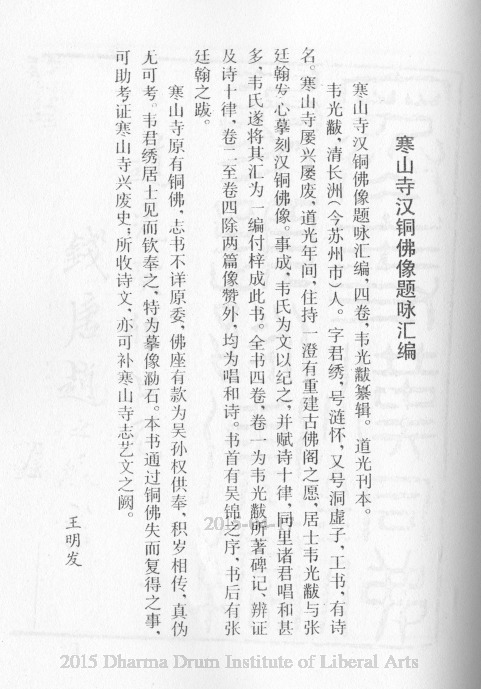 寒山寺汉铜佛像题咏汇编
寒山寺汉铜佛像题咏汇编，四卷，韦光黻纂辑。道光刊本。
韦光黻，清长洲（今苏州市）人。字君绣，号涟怀，又号洞虚子，工书，有诗
名。寒山寺屡兴屡废，道光年间，住持一澄有重建古佛阁之愿，居士韦光黻与张
廷翰发心摹刻汉铜佛像。事成，韦氏为文以纪之，并赋诗十律，同里诸君唱和甚
多，韦氏遂将其汇为一编付梓成此书。全书四卷，卷一为韦光黻所著碑记、辨证
及诗十律，卷二至卷四除两篇像赞外，均为唱和诗。书首有吴锦之序，书后有张
廷翰之跋。
寒山寺原有铜佛，志书不详原委，佛座有款为吴孙权供奉，积岁相传，真伪
无可考。韦君绣居士见而钦奉之，特为摹像泐石。本书通过铜佛失而复得之事，
可助考证寒山寺兴废史；所收诗文，亦可补寒山寺志艺文之阙。
王明发
2015 Dharma Drum Institute of Liberal Arts